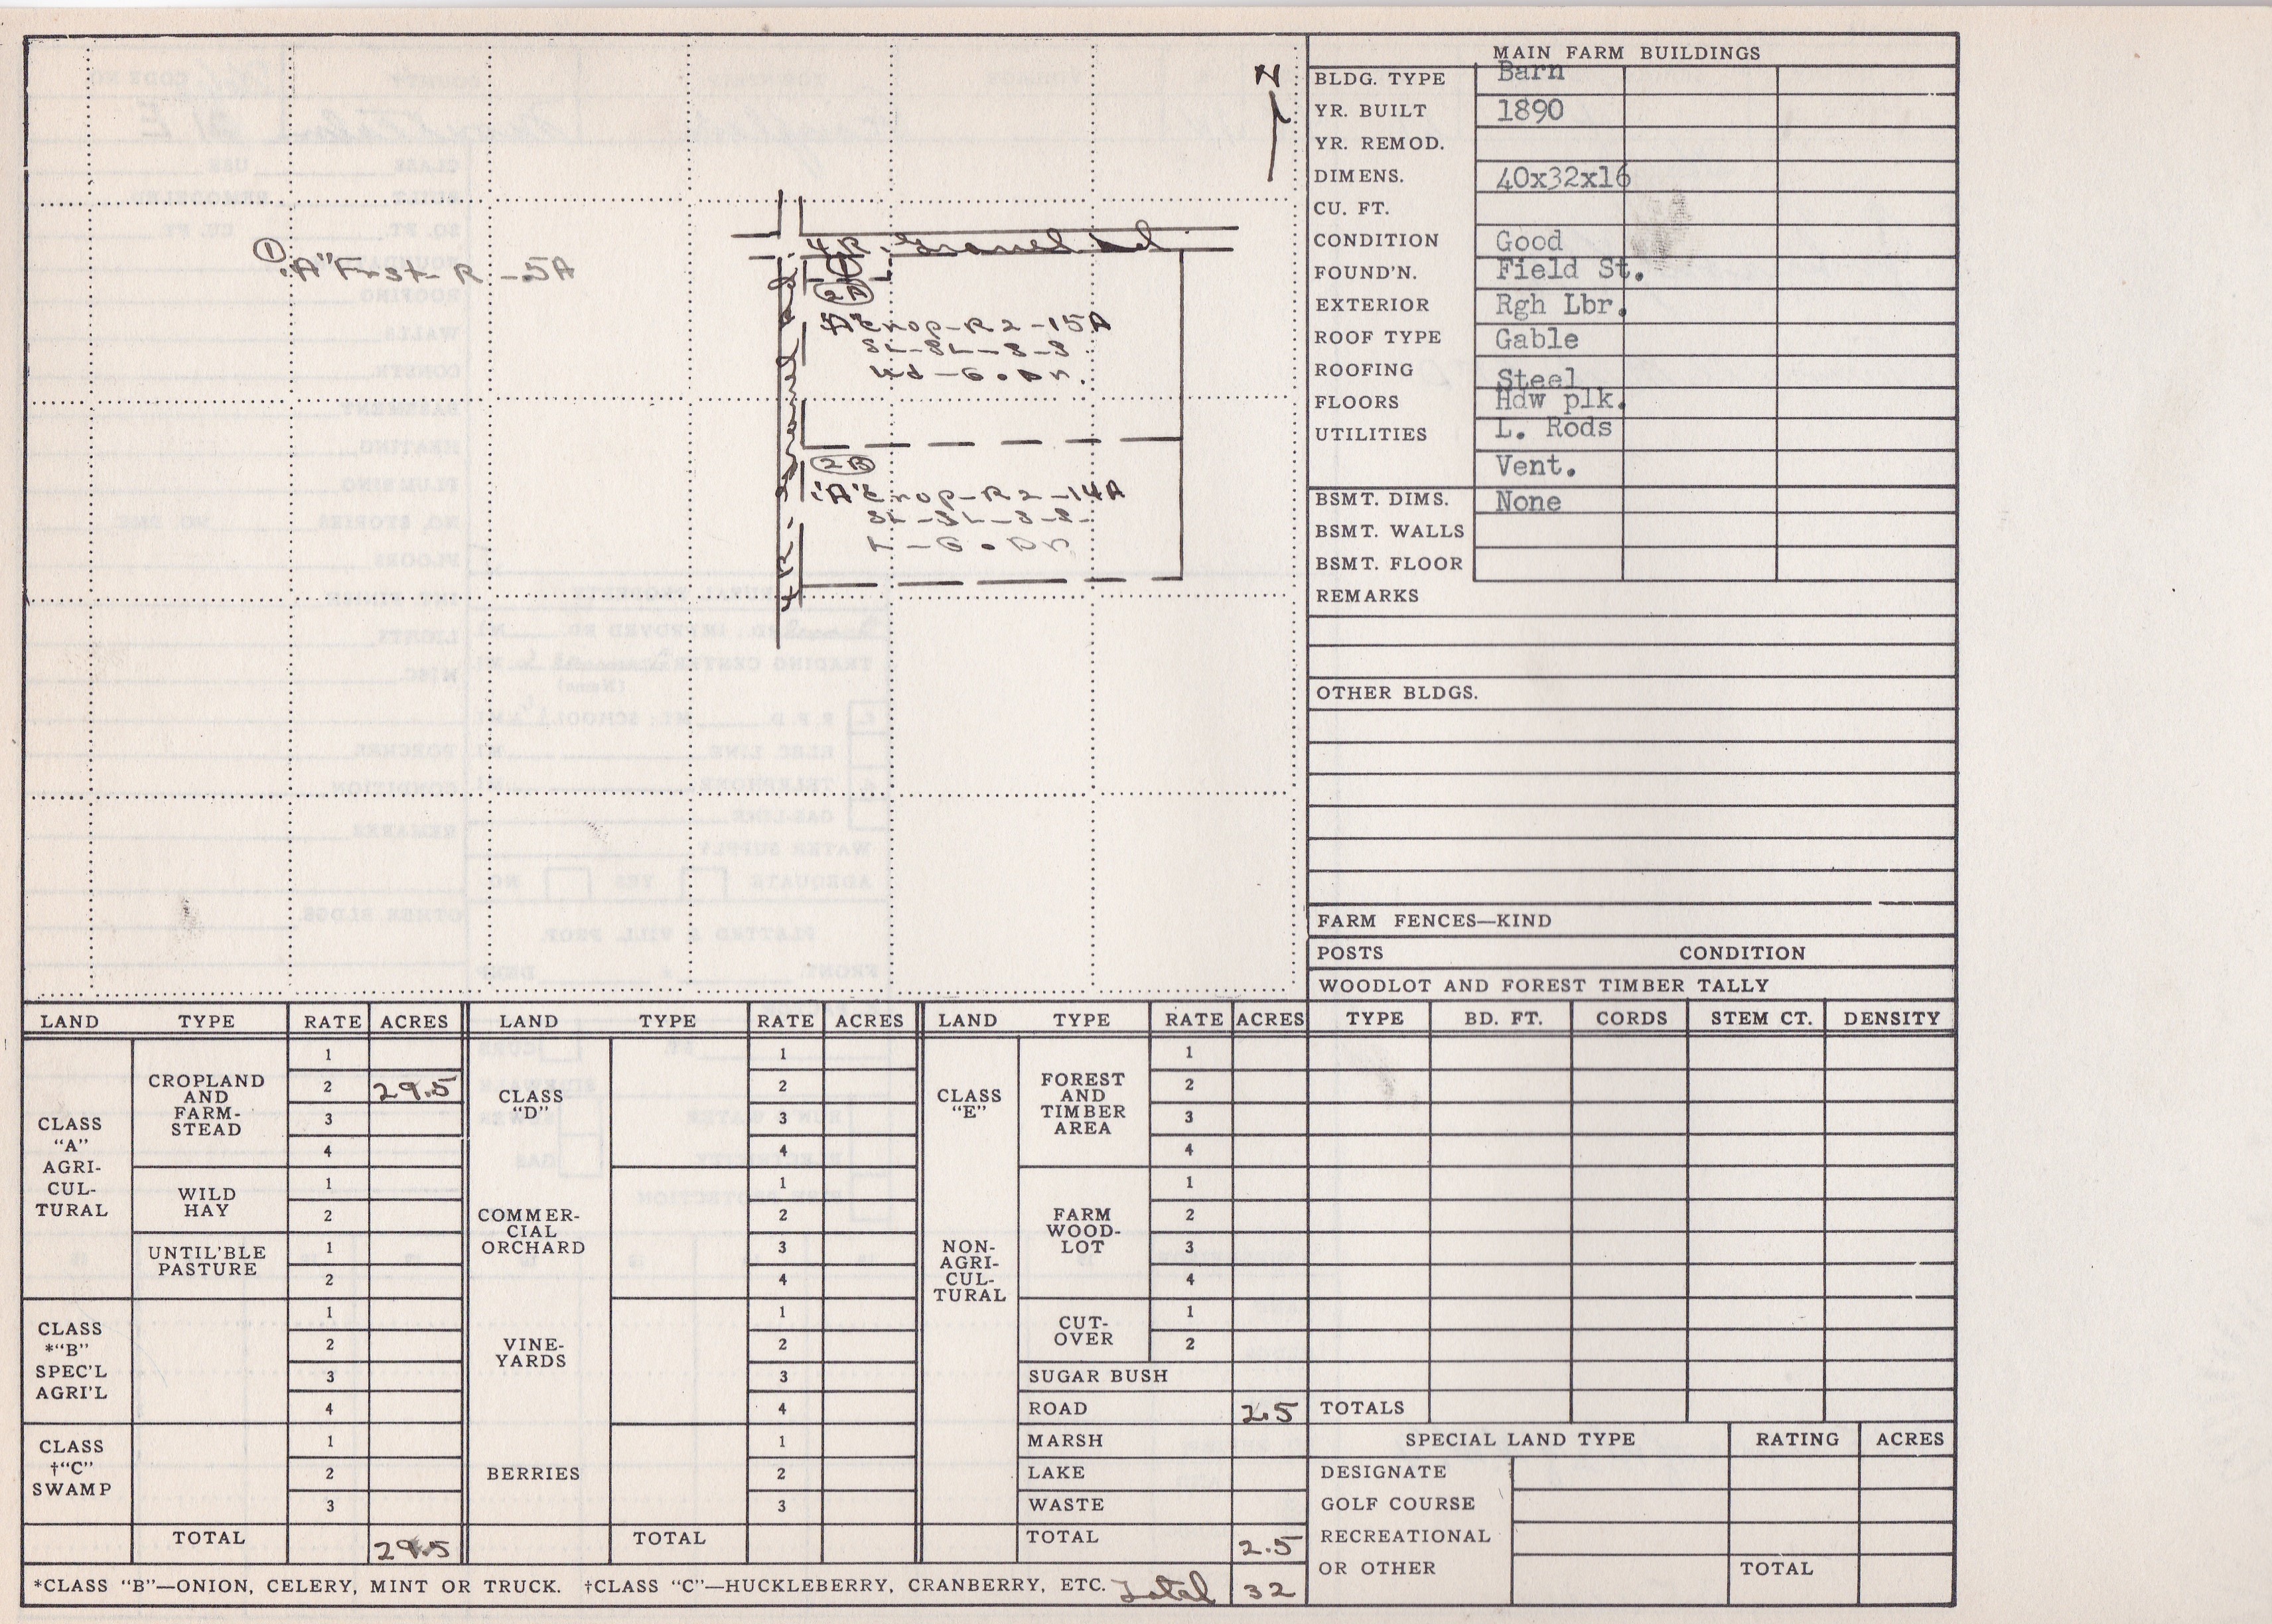 N
① "A" Frst-R -.5A
4 R. Gravel Rd
①
2A
"A" Crop-R2-15A
SL-SL-S-S
Wd-G.Dn.
2B
"A" Crop-R2-14A
SL-SL-S-S-
L-G.Dn.
4 R.
MAIN FARM BUILDINGS
BLDG. TYPE Barn
YR. BUILT 1890
YR. REMOD.
DIMENS. 40x32x16
CU. FT.
CONDITION Good
FOUND'N. Field St.
EXTERIOR Rgh Lbr.
ROOF TYPE Gable
ROOFING Steel
FLOORS Hdw plk.
UTILITIES L. Rods
Vent.
BSMT. DIMS. None
BSMT. WALLS
BSMT. FLOOR
REMARKS
OTHER BLDGS.
FARM FENCES—KIND
POSTS CONDITION
WOODLOT AND FOREST TIMBER TALLY
TYPE BD. FT. CORDS STEM CT. DENSITY
TOTALS
SPECIAL LAND TYPE RATING ACRES
DESIGNATE
GOLF COURSE
RECREATIONAL
OR OTHER TOTAL
LAND TYPE RATE ACRES
CLASS
"A"
AGRI-
CUL-
TURAL
CROPLAND
AND
FARM-
STEAD
1
2 29.5
3
4
WILD
HAY
1
2
UNTIL'BLE
PASTURE
1
2
CLASS
*"B"
SPEC'L
AGRI'L
1
2
3
4
CLASS
†"C"
SWAMP
1
2
3
TOTAL 29.5
LAND TYPE RATE ACRES
CLASS
"D"
1
2
3
4
COMMER-
CIAL
ORCHARD
1
2
3
4
VINE-
YARDS
1
2
3
4
BERRIES
1
2
3
TOTAL
LAND TYPE RATE ACRES
CLASS
"E"
NON-
AGRI-
CUL-
TURAL
FOREST
AND
TIMBER
AREA
1
2
3
4
FARM
WOOD-
LOT
1
2
3
4
CUT-
OVER
1
2
SUGAR BUSH
ROAD 2.5
MARSH
LAKE
WASTE
TOTAL 2.5
*CLASS "B"—ONION, CELERY, MINT OR TRUCK. †CLASS "C"—HUCKLEBERRY, CRANBERRY, ETC. Total 32